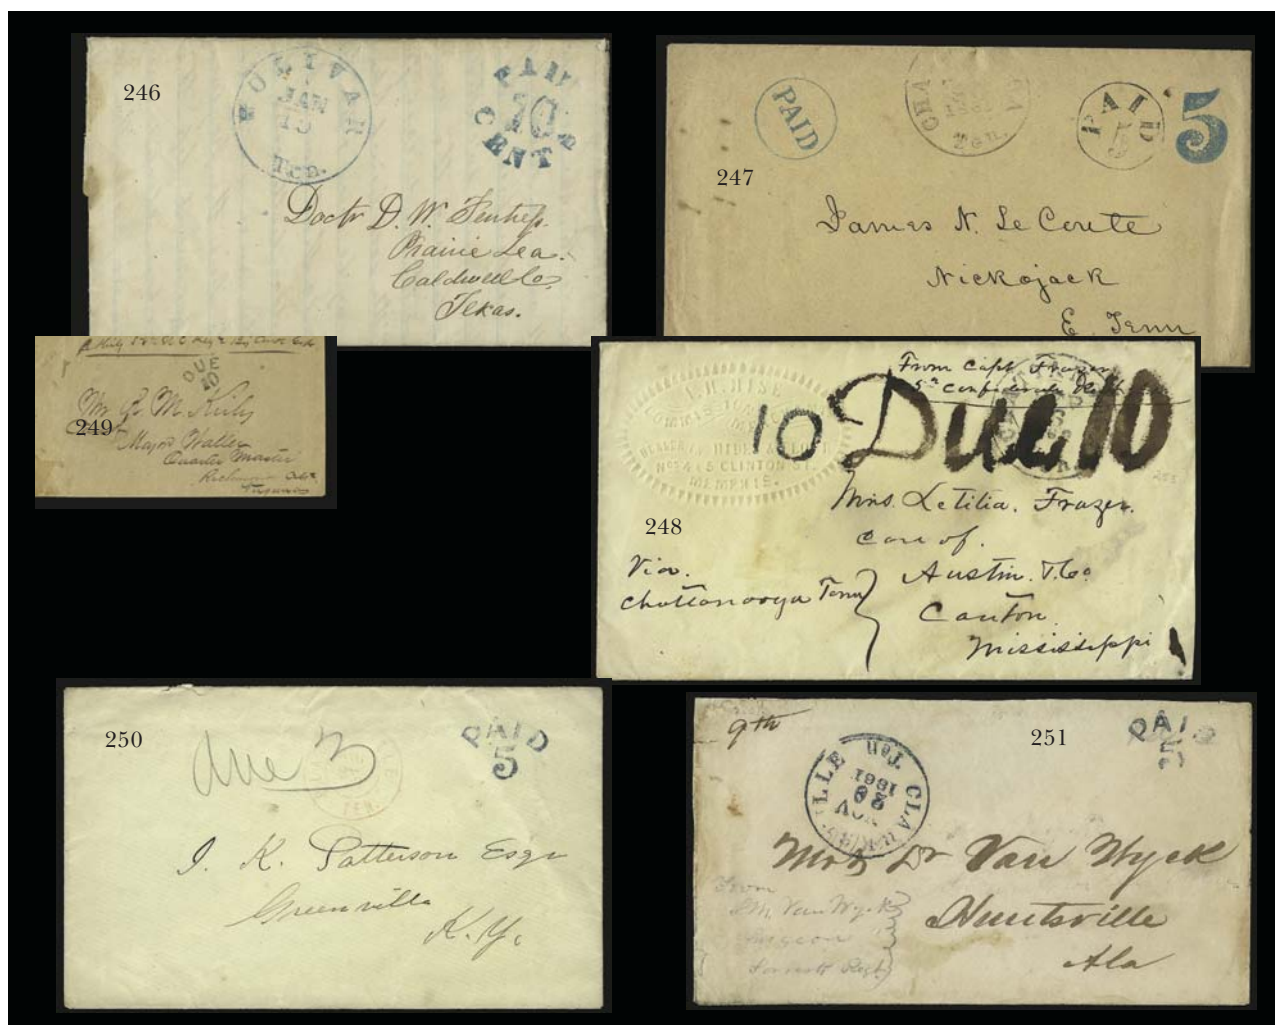 246
BOLIVAR
JAN
13
Ten.
PAID
10
CENTS
Doctr D. W. Fentress.
Prairie Lea.
Caldwell Co.
Texas.
247
PAID
CHA GA
Ten.
PAID
5
5
James N. Le Conte
Nickojack
E. Tenn
249
DUE
10
Mr R. M. Kirby
Care Major Waller
Quarter Master
Richmond
Virginia
248
HISE
Nos 4 & 5 CLINTON ST.
MEMPHIS.
From Capt Frazer
5th Confederate Regt
10 Due 10
Mrs. Letitia. Frazer.
care of.
Austin. & Co.
Canton
Mississippi
Via.
Chattanooga Tenn
250
due 3
TEN.
PAID
5
J. K. Patterson Esqr
Greenville
K.Y.
251
9th
CLARKSVILLE Ten.
NOV
20
1861
PAID
5
Mrs Dr Van Wyck
Huntsville
Ala
From
S.M. Van Wyck
Surgeon
Forrest's Regt